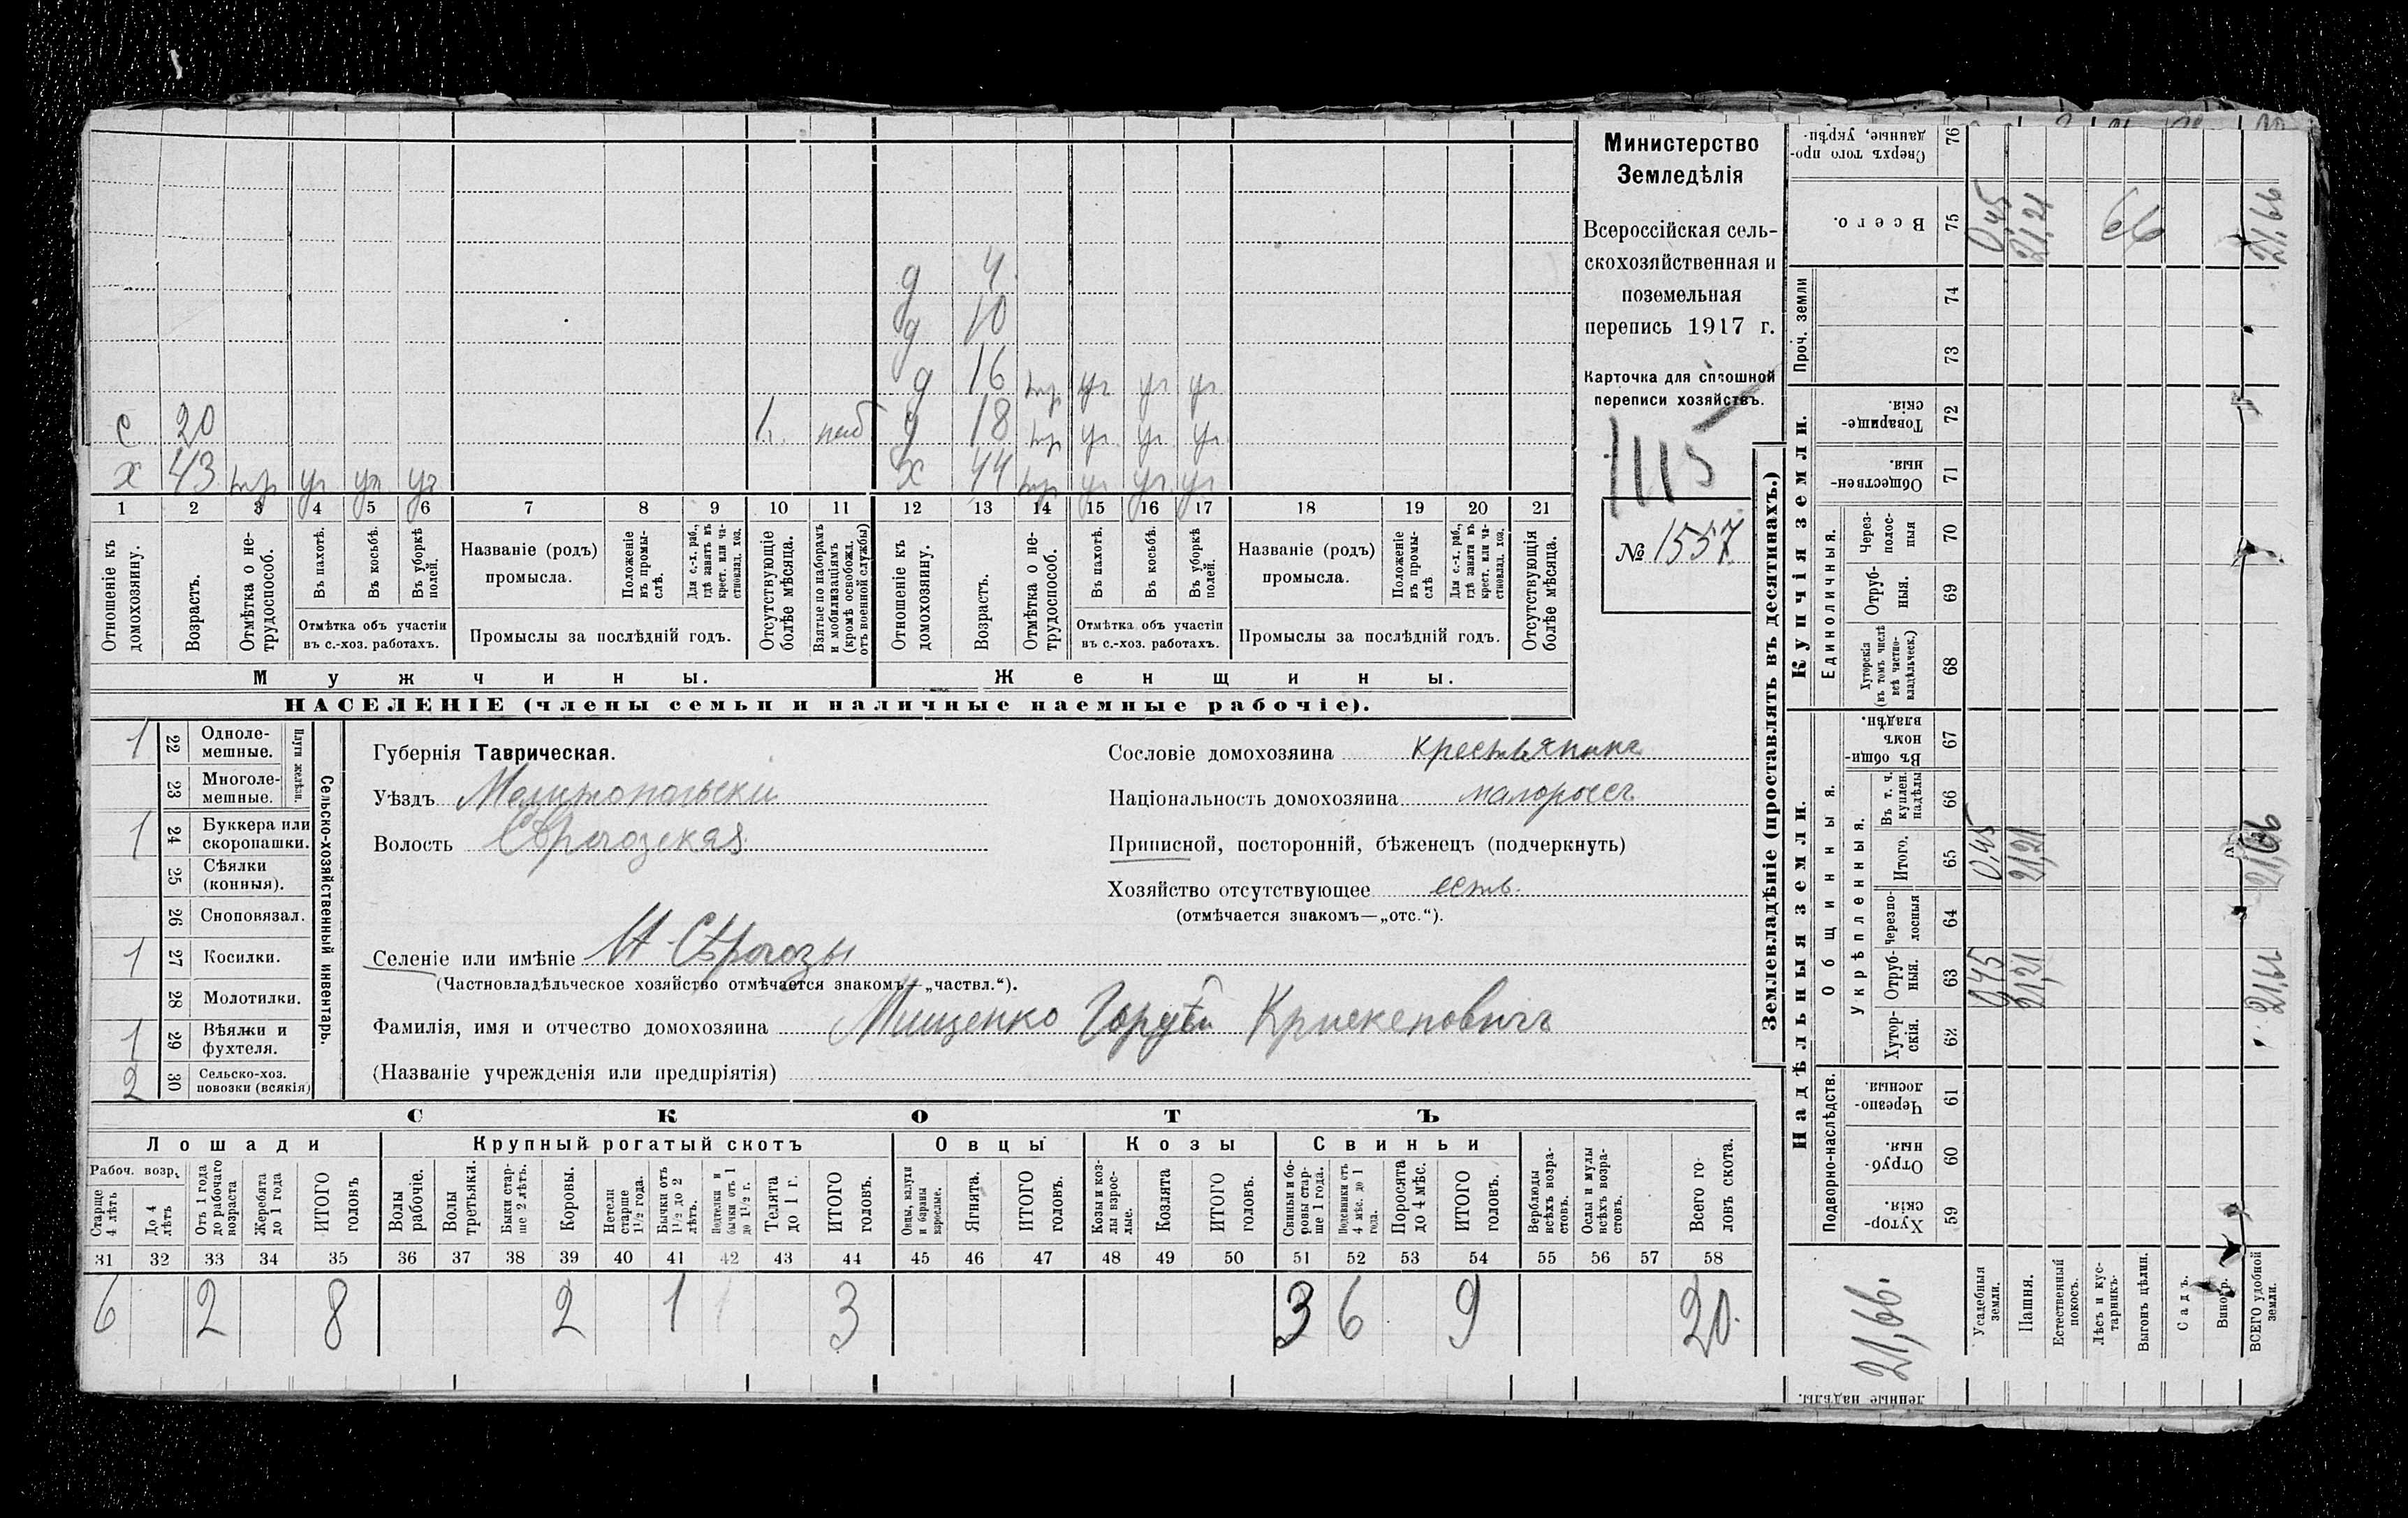 Министерство
Земледѣлія
Всероссійская сель-
скохозяйственная и
поземельная
перепись 1917 г.
Карточка для сплошной
переписи хозяйствъ.
1115
№ 1557
д 4
д 10
д 16 тр уч уч уч
с 20 1 д 18 тр уч уч уч
х 43 тр уч уч уч х 44 тр уч уч уч
1 2 3 4 5 6 7 8 9 10 11 12 13 14 15 16 17 18 19 20 21
Отношеніе къ домохозяину.
Возрастъ.
Отмѣтка о не-трудоспособ.
Въ пахотѣ.
Въ косьбѣ.
Въ уборкѣ полей.
Отмѣтка объ участіи въ с.-хоз. работахъ.
Названіе (родъ) промысла.
Положеніе въ промы-слѣ.
Для с.-х. раб., гдѣ занятъ въ крест. или ча-стновлад. хоз.
Промыслы за послѣдній годъ.
Отсутствующіе болѣе мѣсяца.
Взятые по наборамъ и мобилизаціямъ (кромѣ освобожд. отъ военной службы)
Отношеніе къ домохозяину.
Возрастъ.
Отмѣтка о не-трудоспособ.
Въ пахотѣ.
Въ косьбѣ.
Въ уборкѣ полей.
Отмѣтка объ участіи въ с.-хоз. работахъ.
Названіе (родъ) промысла.
Положеніе въ промы-слѣ
Для с.-х. раб., гдѣ занята въ крест. или ча-стновлад. хоз.
Промыслы за послѣдній годъ.
Отсутствующія болѣе мѣсяца.
Мужчины. Женщины.
НАСЕЛЕНІЕ (члены семьи и наличные наемные рабочіе).
Сельско-хозяйственный инвентарь.
Плуги желѣзн.
1 22 Одноле-мешные.
23 Многоле-мешные.
1 24 Буккера или скоропашки.
25 Сѣялки (конныя).
26 Сноповязал.
1 27 Косилки.
28 Молотилки.
1 29 Вѣялки и фухтеля.
2 30 Сельско-хоз. повозки (всякія)
Губернія Таврическая.
Уѣздъ Мелитопольски
Волость Сѣрогозская
Селеніе или имѣніе Н Сѣрогозы
(Частновладѣльческое хозяйство отмѣчается знакомъ—„частвл.“).
Фамилія, имя и отчество домохозяина Мищенко
(Названіе учрежденія или предпріятія)
Сословіе домохозяина крестьянинъ
Національность домохозяина малороссъ
Приписной, посторонній, бѣженецъ (подчеркнуть)
Хозяйство отсутствующее есть
(отмѣчается знакомъ—„отс.“).
СКОТЪ
Лошади Крупный рогатый скотъ Овцы Козы Свиньи
Рабоч. возр.
Старше 4 лѣтъ
До 4 лѣтъ
Отъ 1 года до рабочаго возраста
Жеребята до 1 года
ИТОГО головъ
Волы рабочіе.
Волы третьяки.
Быки стар-ше 2 лѣтъ.
Коровы.
Нетели старше 1½ года.
Бычки отъ 1½ до 2 лѣтъ.
Подтелки и бычки отъ 1 до 1½ г.
Телята до 1 г.
ИТОГО головъ.
Овцы, валухи и бараны взрослые.
Ягнята.
ИТОГО головъ.
Козы и коз-лы взрос-лые.
Козлята
ИТОГО головъ.
Свиньи и бо-ровы стар-ше 1 года.
Подсвинки отъ 4 мѣс. до 1 года.
Поросята до 4 мѣс.
ИТОГО головъ.
Верблюды всѣхъ возра-стовъ.
Ослы и мулы всѣхъ возра-стовъ.
Всего го-ловъ скота.
31 32 33 34 35 36 37 38 39 40 41 42 43 44 45 46 47 48 49 50 51 52 53 54 55 56 57 58
6 2 8 2 1 3 3 6 9 20
Землевладѣніе (проставлять въ десятинахъ.)
Купчія земли.
Надѣльныя земли.
Проч. земли
Единоличныя.
Общинныя.
Укрѣпленныя.
Подворно-наслѣдств.
Сверхъ того про-данные, укрѣп- 76
Всего. 75 0,45 21,21 66 21,66
74
73
Товарище-скія. 72
Обществен-ныя. 71
Через-полос-ныя 70
Отруб-ныя. 69
Хуторскія (въ томъ числѣ всѣ частно-владѣльческ.) 68
Въ общи-номъ владѣн. 67
Въ т. ч. куплен. надѣлы 66
Итого. 65 0,45 21,21 21,66
Черезпо-лосныя 64
Отруб-ныя. 63 0,45 21,21 21,66
Хутор-скія. 62
Черезпо-лосныя. 61
Отруб-ныя. 60
Хутор-скія. 59
21,66.
ленные надѣлы.
Усадебныя земли.
Пашня.
Естественный покосъ.
Лѣсъ и кус-тарникъ.
Выгонъ цѣлин.
Садъ.
Виногр.
ВСЕГО удобной земли.